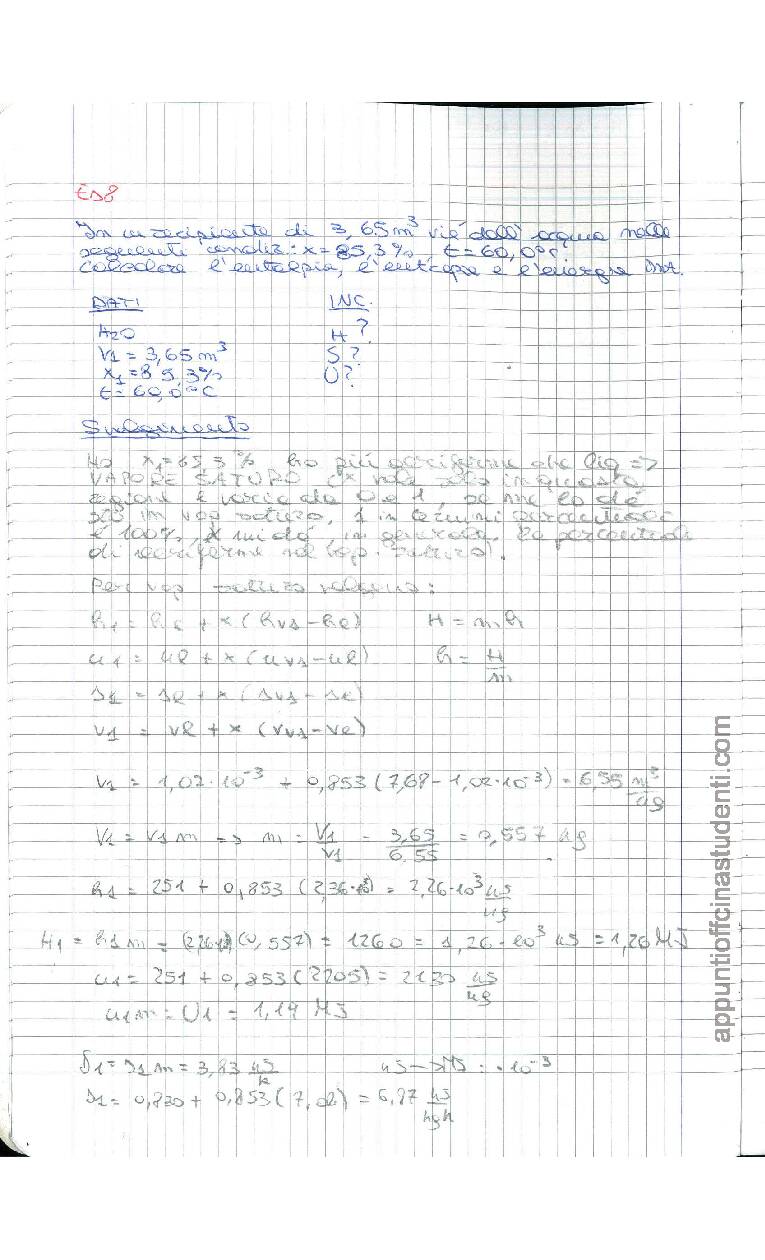 ES8
In un recipiente di 3,65 m³ vi è dell' acqua nelle
seguenti condiz.: x = 85,3 %, t = 60,0°C.
Calcolare l'entalpia, l'entropia e l'energia int.
DATI INC.
H2O H?
V1 = 3,65 m³ S?
x1 = 85,3% U?
t = 60,0°C
Svolgimento
Ho x1 = 85,3 % ho più aeriforme che liq =>
VAPORE SATURO (x vale solo in questa
regione e varia da 0 a 1, se me lo dà
sto in vap saturo, 1 in termini percentuali
è 100%, x mi dà, in generale, la percentuale
di aeriforme nel vap. saturo).
Per vap saturo valgono:
h1 = hl + x (hvs - hl) H = m h
u1 = ul + x (uvs - ul) h = H/m
s1 = sl + x (svs - sl)
v1 = vl + x (vvs - vl)
v1 = 1,02·10⁻³ + 0,853 (7,68 - 1,02·10⁻³) = 6,55 m³/kg
V1 = v1 m => m = V1/v1 = 3,65/6,55 = 0,557 kg
h1 = 251 + 0,853 (2,36·10³) = 2,26·10³ kJ/kg
H1 = h1 m = (2,26·10³) (0,557) = 1260 = 1,26·10³ kJ = 1,26 MJ
u1 = 251 + 0,853 (2205) = 2130 kJ/kg
u1 m = U1 = 1,19 MJ
S1 = s1 m = 3,83 kJ/k kJ -> MJ : ·10⁻³
s1 = 0,830 + 0,853 (7,08) = 6,87 kJ/kgk
appuntioffcinastudenti.com